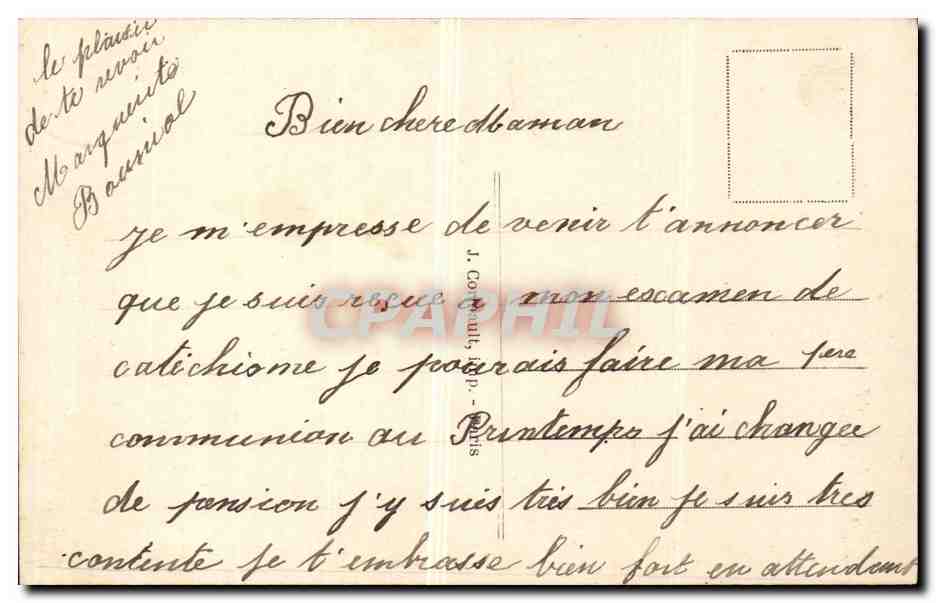 Bien chere Maman
je m'empresse de venir t'annoncer
que je suis reçue a mon examen de
catéchisme je pourais faire ma 1ere
communion au Printemps j'ai changée
de pension j'y suis très bien je suis tres
contente je t'embrasse bien fort en attendant
le plaisir
de te revoir
Marguerite
J. Cor ult, i p. - Paris
CPAPHIL